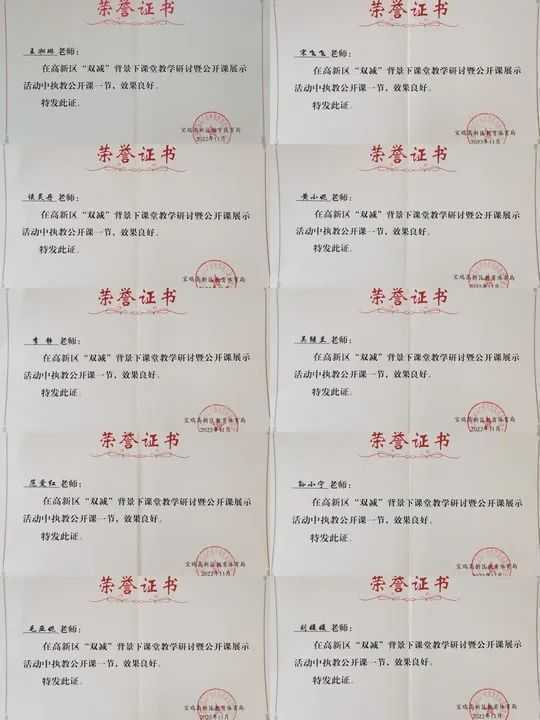 荣誉证书
老师：
在高新区“双减”背景下课堂教学研讨暨公开课展示
活动中执教公开课一节，效果良好。
特发此证。
宝鸡高新区教育体育局
2022年11月
荣誉证书
宋飞飞 老师：
在高新区“双减”背景下课堂教学研讨暨公开课展示
活动中执教公开课一节，效果良好。
特发此证。
宝鸡高新区教育体育局
2022年11月
荣誉证书
老师：
在高新区“双减”背景下课堂教学研讨暨公开课展示
活动中执教公开课一节，效果良好。
特发此证。
宝鸡高新区教育体育局
荣誉证书
黄小妮 老师：
在高新区“双减”背景下课堂教学研讨暨公开课展示
活动中执教公开课一节，效果良好。
特发此证。
宝鸡高新区教育体育局
2022年11月
荣誉证书
李静 老师：
在高新区“双减”背景下课堂教学研讨暨公开课展示
活动中执教公开课一节，效果良好。
特发此证。
宝鸡高新区教育体育局
2022年11月
荣誉证书
老师：
在高新区“双减”背景下课堂教学研讨暨公开课展示
活动中执教公开课一节，效果良好。
特发此证。
宝鸡高新区教育体育局
2022年11月
荣誉证书
范爱红 老师：
在高新区“双减”背景下课堂教学研讨暨公开课展示
活动中执教公开课一节，效果良好。
特发此证。
宝鸡高新区教育体育局
2022年11月
荣誉证书
孙小宁 老师：
在高新区“双减”背景下课堂教学研讨暨公开课展示
活动中执教公开课一节，效果良好。
特发此证。
宝鸡高新区教育体育局
2022年11月
荣誉证书
毛亚妮 老师：
在高新区“双减”背景下课堂教学研讨暨公开课展示
活动中执教公开课一节，效果良好。
特发此证。
宝鸡高新区教育体育局
2022年11月
荣誉证书
刘媛媛 老师：
在高新区“双减”背景下课堂教学研讨暨公开课展示
活动中执教公开课一节，效果良好。
特发此证。
宝鸡高新区教育体育局
2022年11月